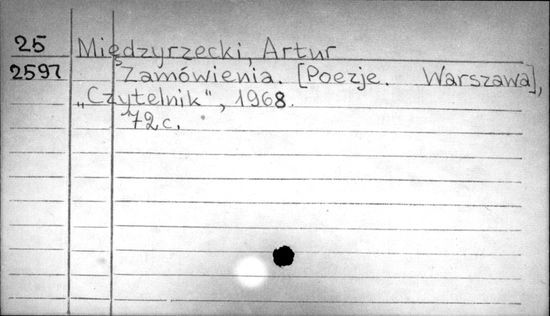 25 Międzyrzecki, Artur
2597 Zamówienia. [Poezje. Warszawa],
„Czytelnik", 1968.
72 c.